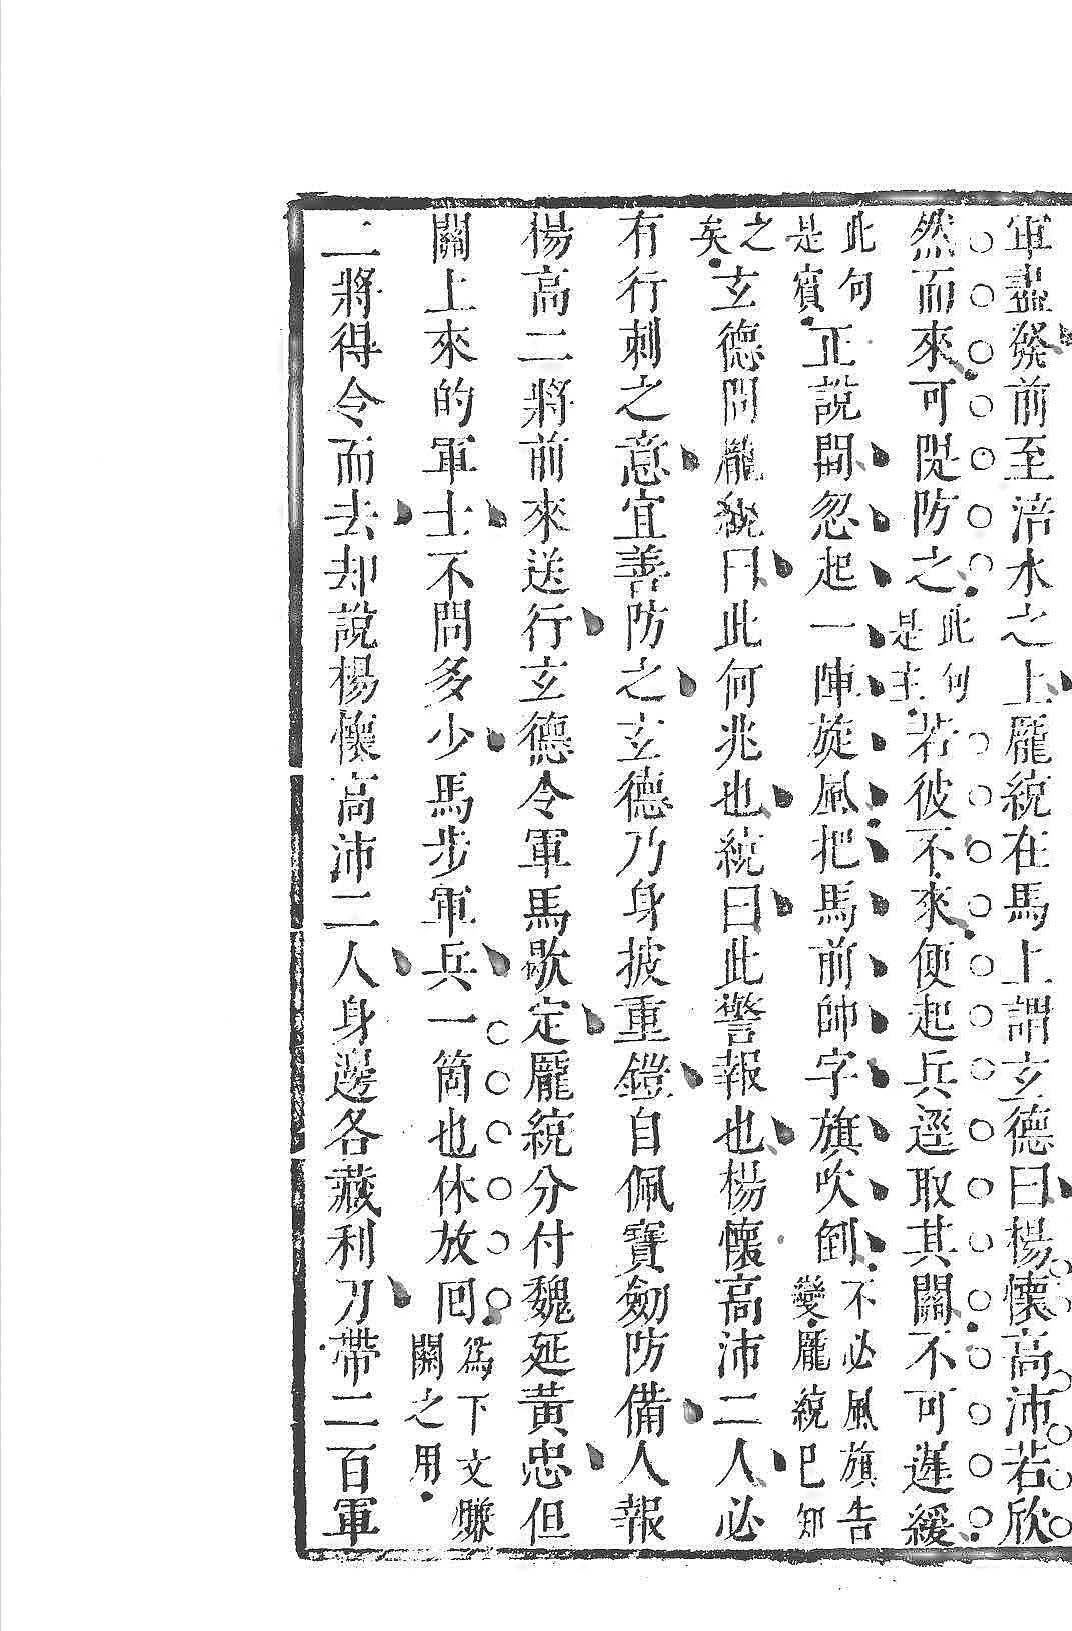 軍盡發前至涪水之上龐統在馬上謂玄德曰楊懷高沛若欣
然而來可隄防之此句是主若彼不來便起兵逕取其關不可遲緩
此句是賓正說間忽起一陣旋風把馬前帥字旗吹倒不必風旗告變龐統已知
之矣玄德問龐統曰此何兆也統曰此警報也楊懷高沛二人必
有行刺之意宜善防之玄德乃身披重鎧自佩寶劒防備人報
楊高二將前來送行玄德令軍馬歇定龐統分付魏延黃忠但
關上來的軍士不問多少馬步軍兵一箇也休放回為下文賺關之用
二將得令而去却說楊懷高沛二人身邊各藏利刀帶二百軍